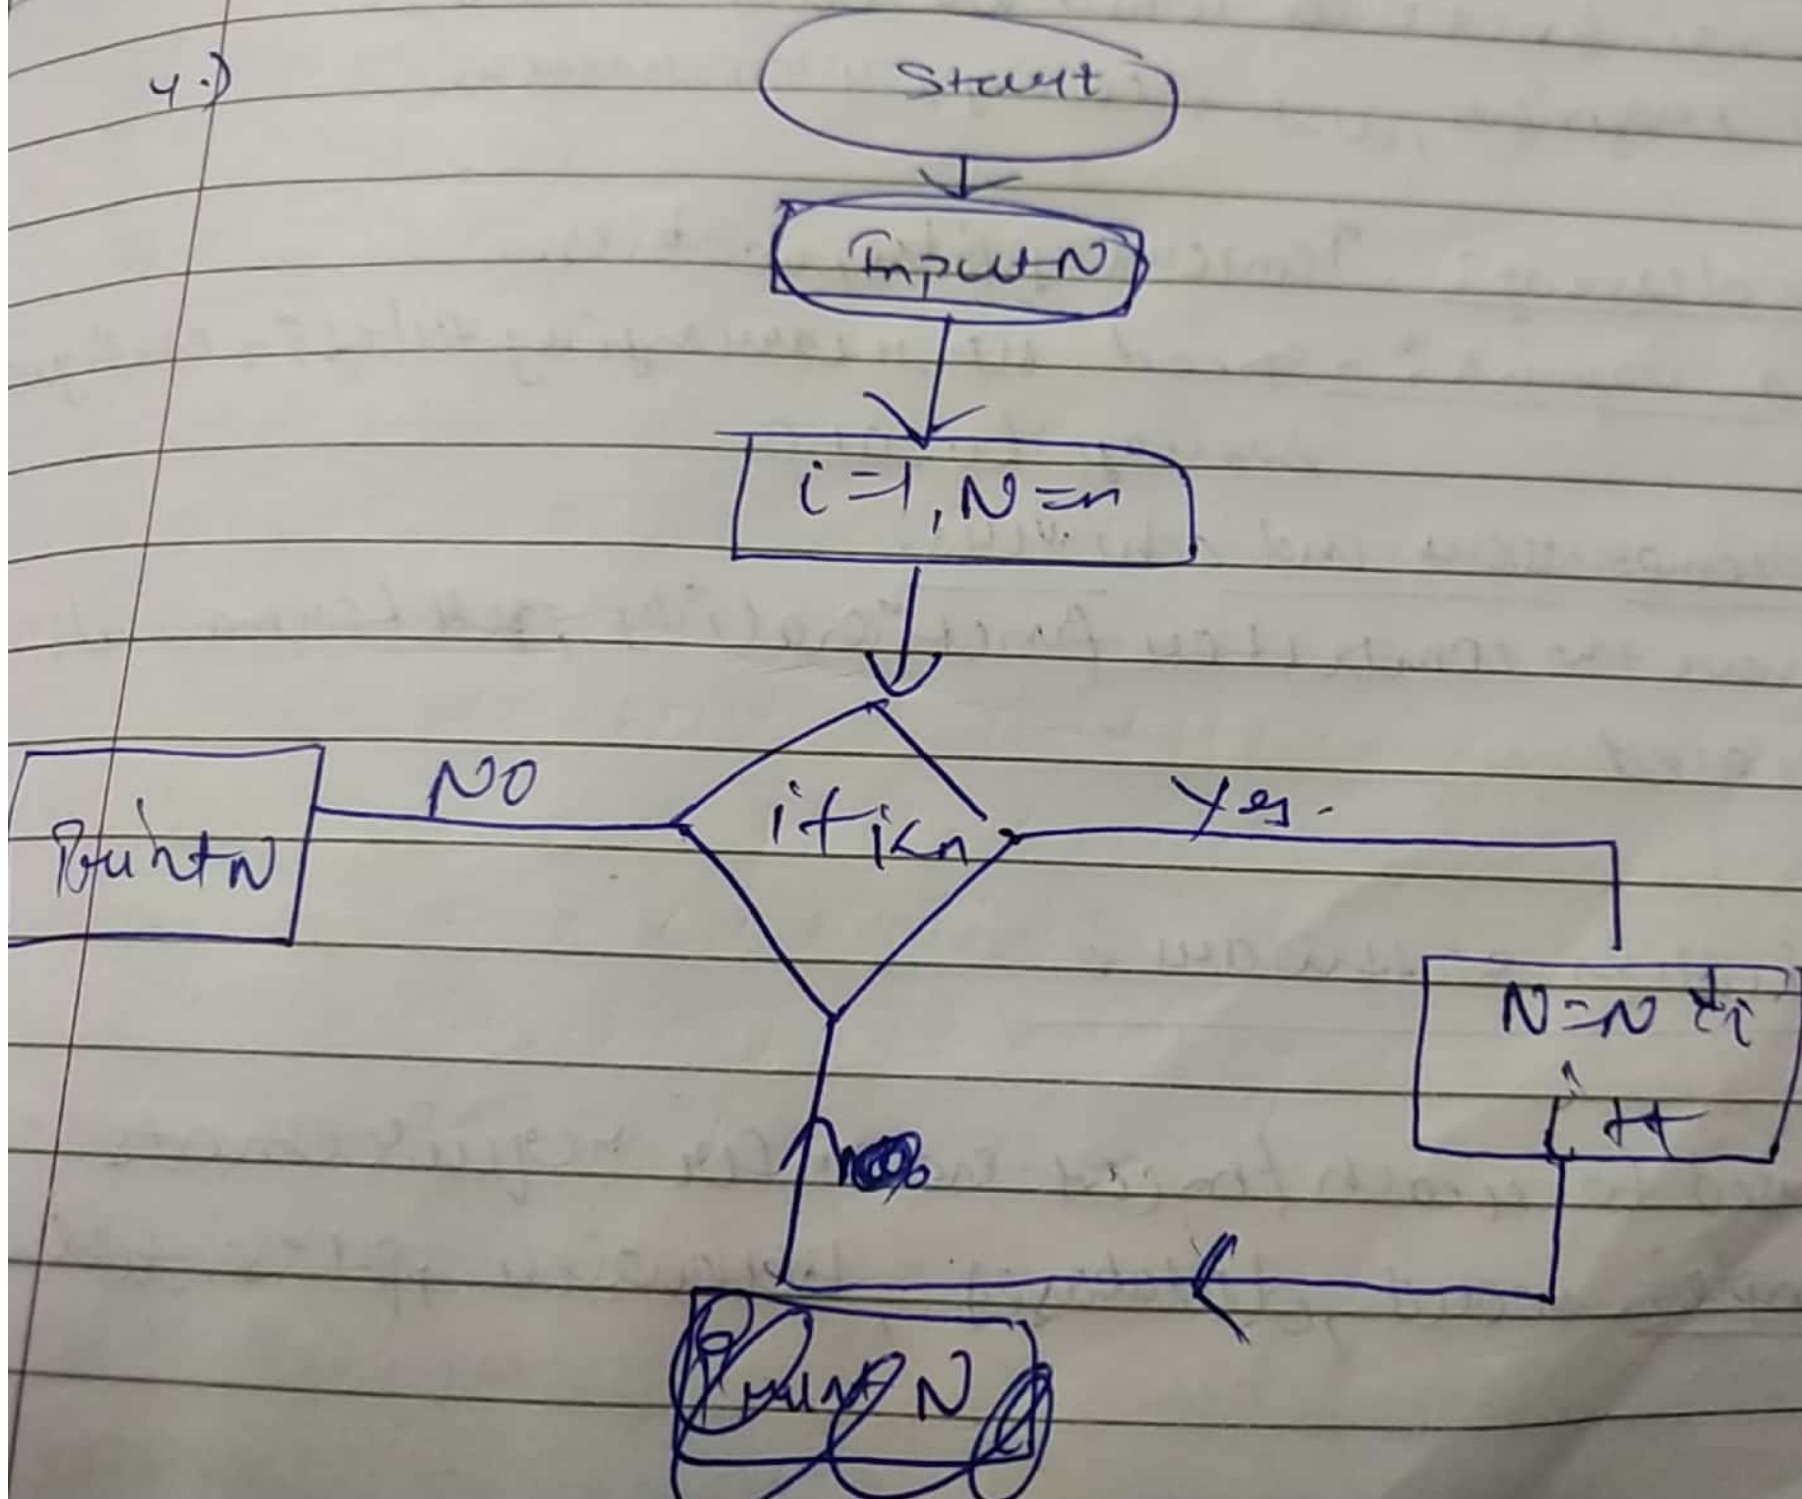 4.)
Start
Input N
i=1, N=n
if i<n
No
Yes.
Print N
N=N *i
i++
Print N